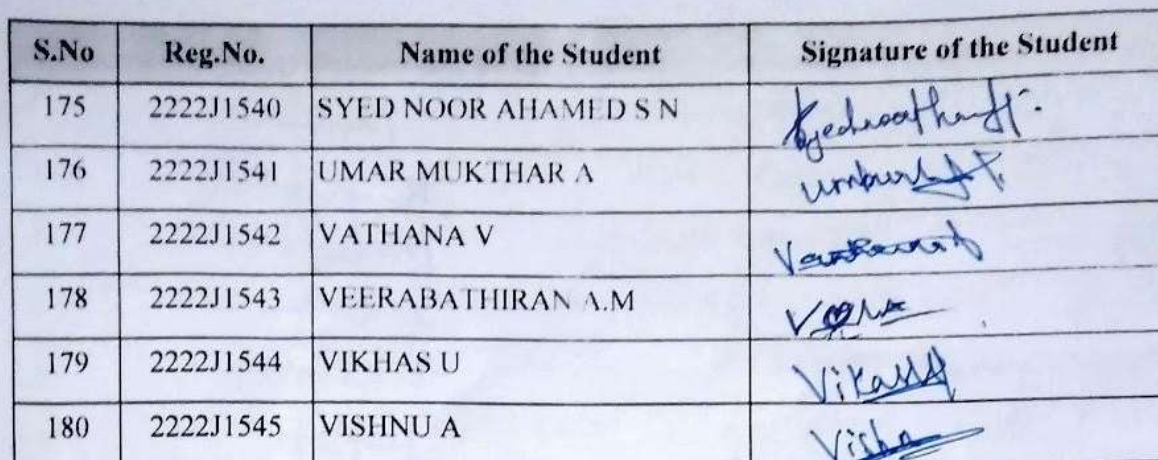 S.No Reg.No. Name of the Student Signature of the Student
175 2222J1540 SYED NOOR AHAMED S N
176 2222J1541 UMAR MUKTHAR A
177 2222J1542 VATHANA V
178 2222J1543 VEERABATHIRAN A.M
179 2222J1544 VIKHAS U
180 2222J1545 VISHNU A